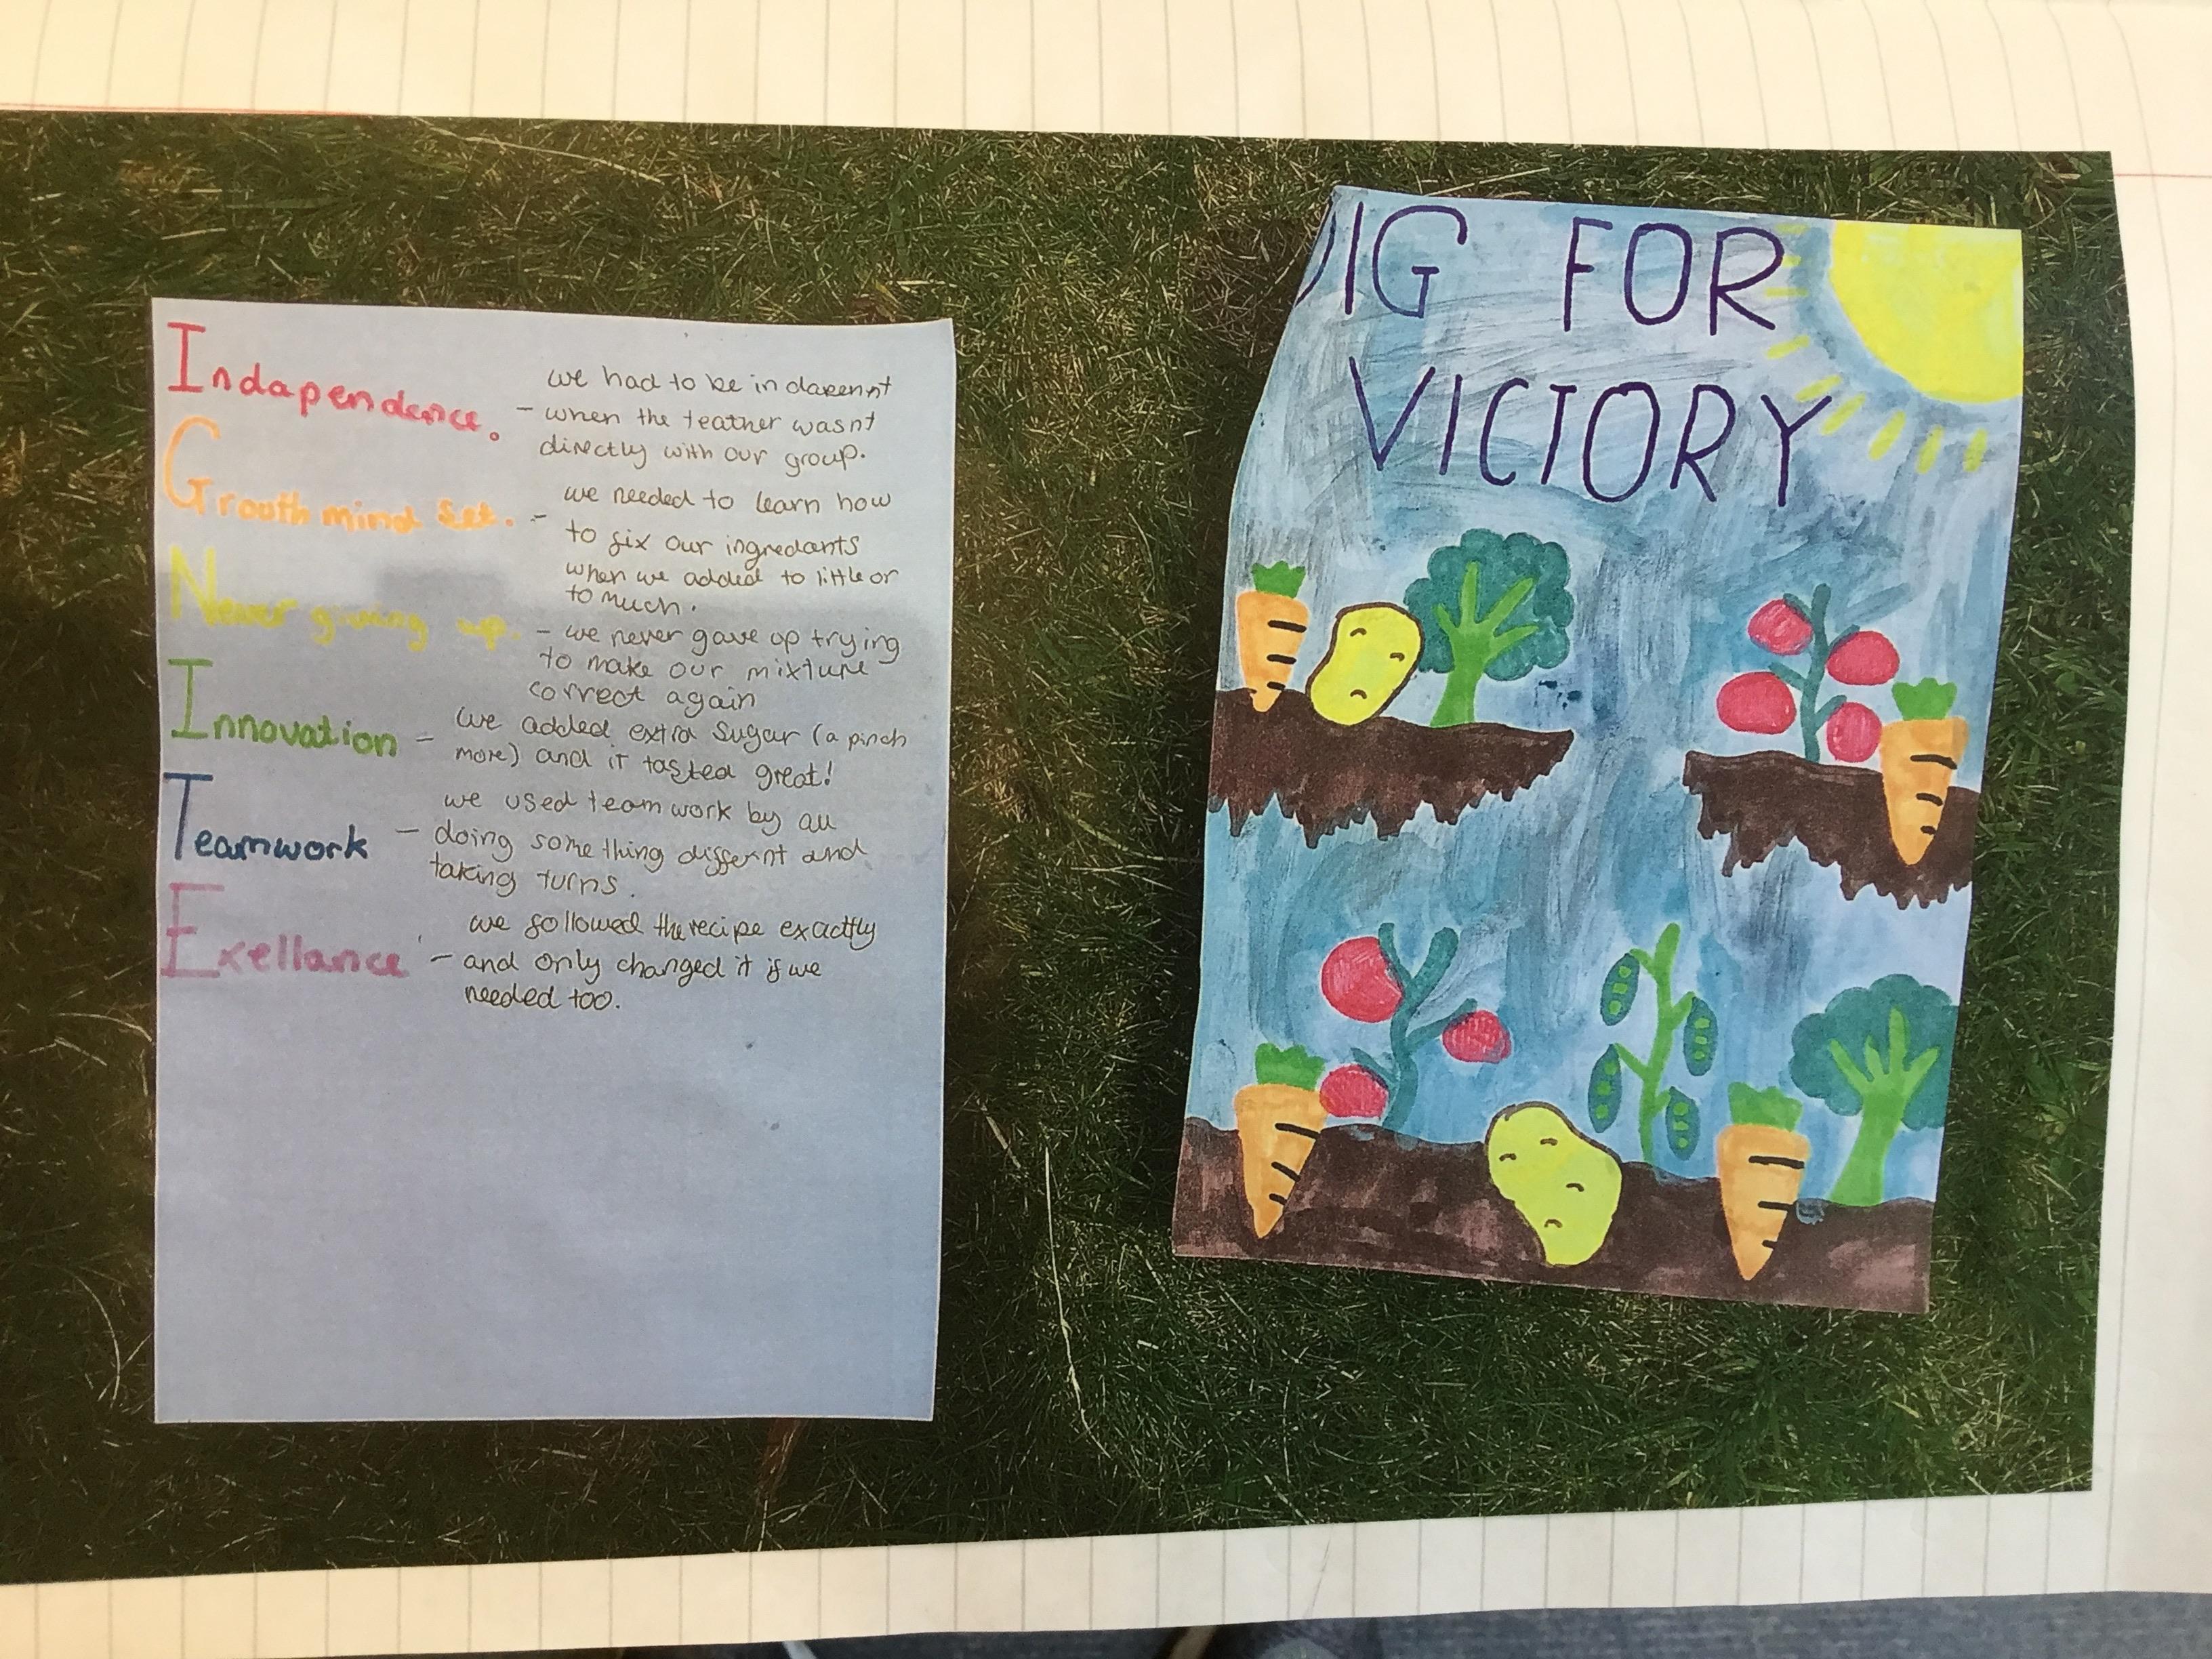 Indapendence.
- we had to be indapennt
when the teather wasnt
directly with our group.
Grouth mind set.
- we needed to learn how
to fix our ingredants
when we added to little or
to much.
Never giving up.
- we never gave up trying
to make our mixture
correct again
Innovation - we added extra sugar (a pinch
more) and it tasted great!
Teamwork -
we used team work by all
doing something differnt and
taking turns.
Exellance -
we followed the recipe exactly
and only changed it if we
needed too.
DIG FOR
VICTORY